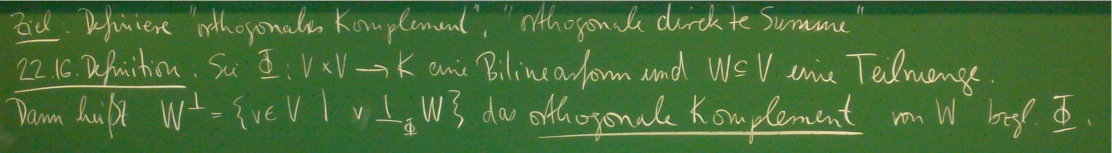 Ziel. Definiere "orthogonales Komplement", "orthogonale direkte Summe"
22.16. Definition. Sei Φ : V × V → K eine Bilinearform und W ⊆ V eine Teilmenge.
Dann heißt W^⊥ = {v ∈ V | v ⊥_Φ W} das orthogonale Komplement von W bzgl. Φ.